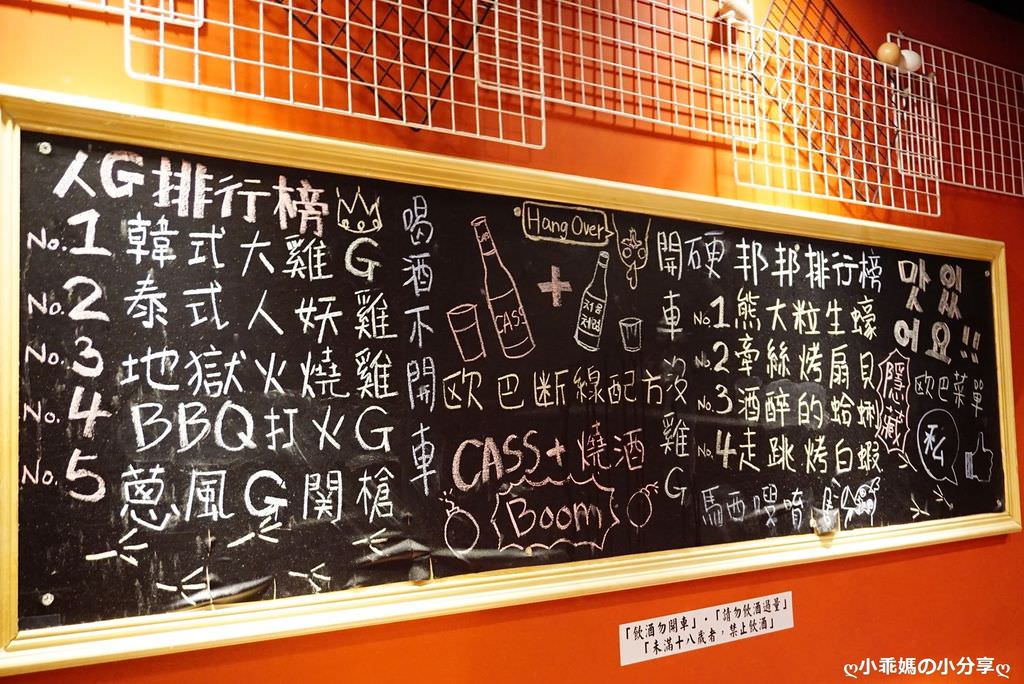 人G排行榜
No.1 韓式大雞G
No.2 泰式人妖雞
No.3 地獄火燒雞
No.4 BBQ打火G
No.5 蔥風G関槍
喝酒不開車
開車沒雞G
Hang Over
CASS
+
처음처럼
欧巴断線配方
CASS+燒酒
Boom
硬邦邦排行榜
No.1 熊大粒生蠔
No.2 牽絲烤扇貝
No.3 酒醉的蛤蜊
No.4 走跳烤白蝦
馬西嘿唷
맛있
어요!!
隱藏
欧巴菜單
私
「飲酒勿開車」·「請勿飲酒過量」
「未滿十八歲者，禁止飲酒」
ღ小乖媽の小分享ღ